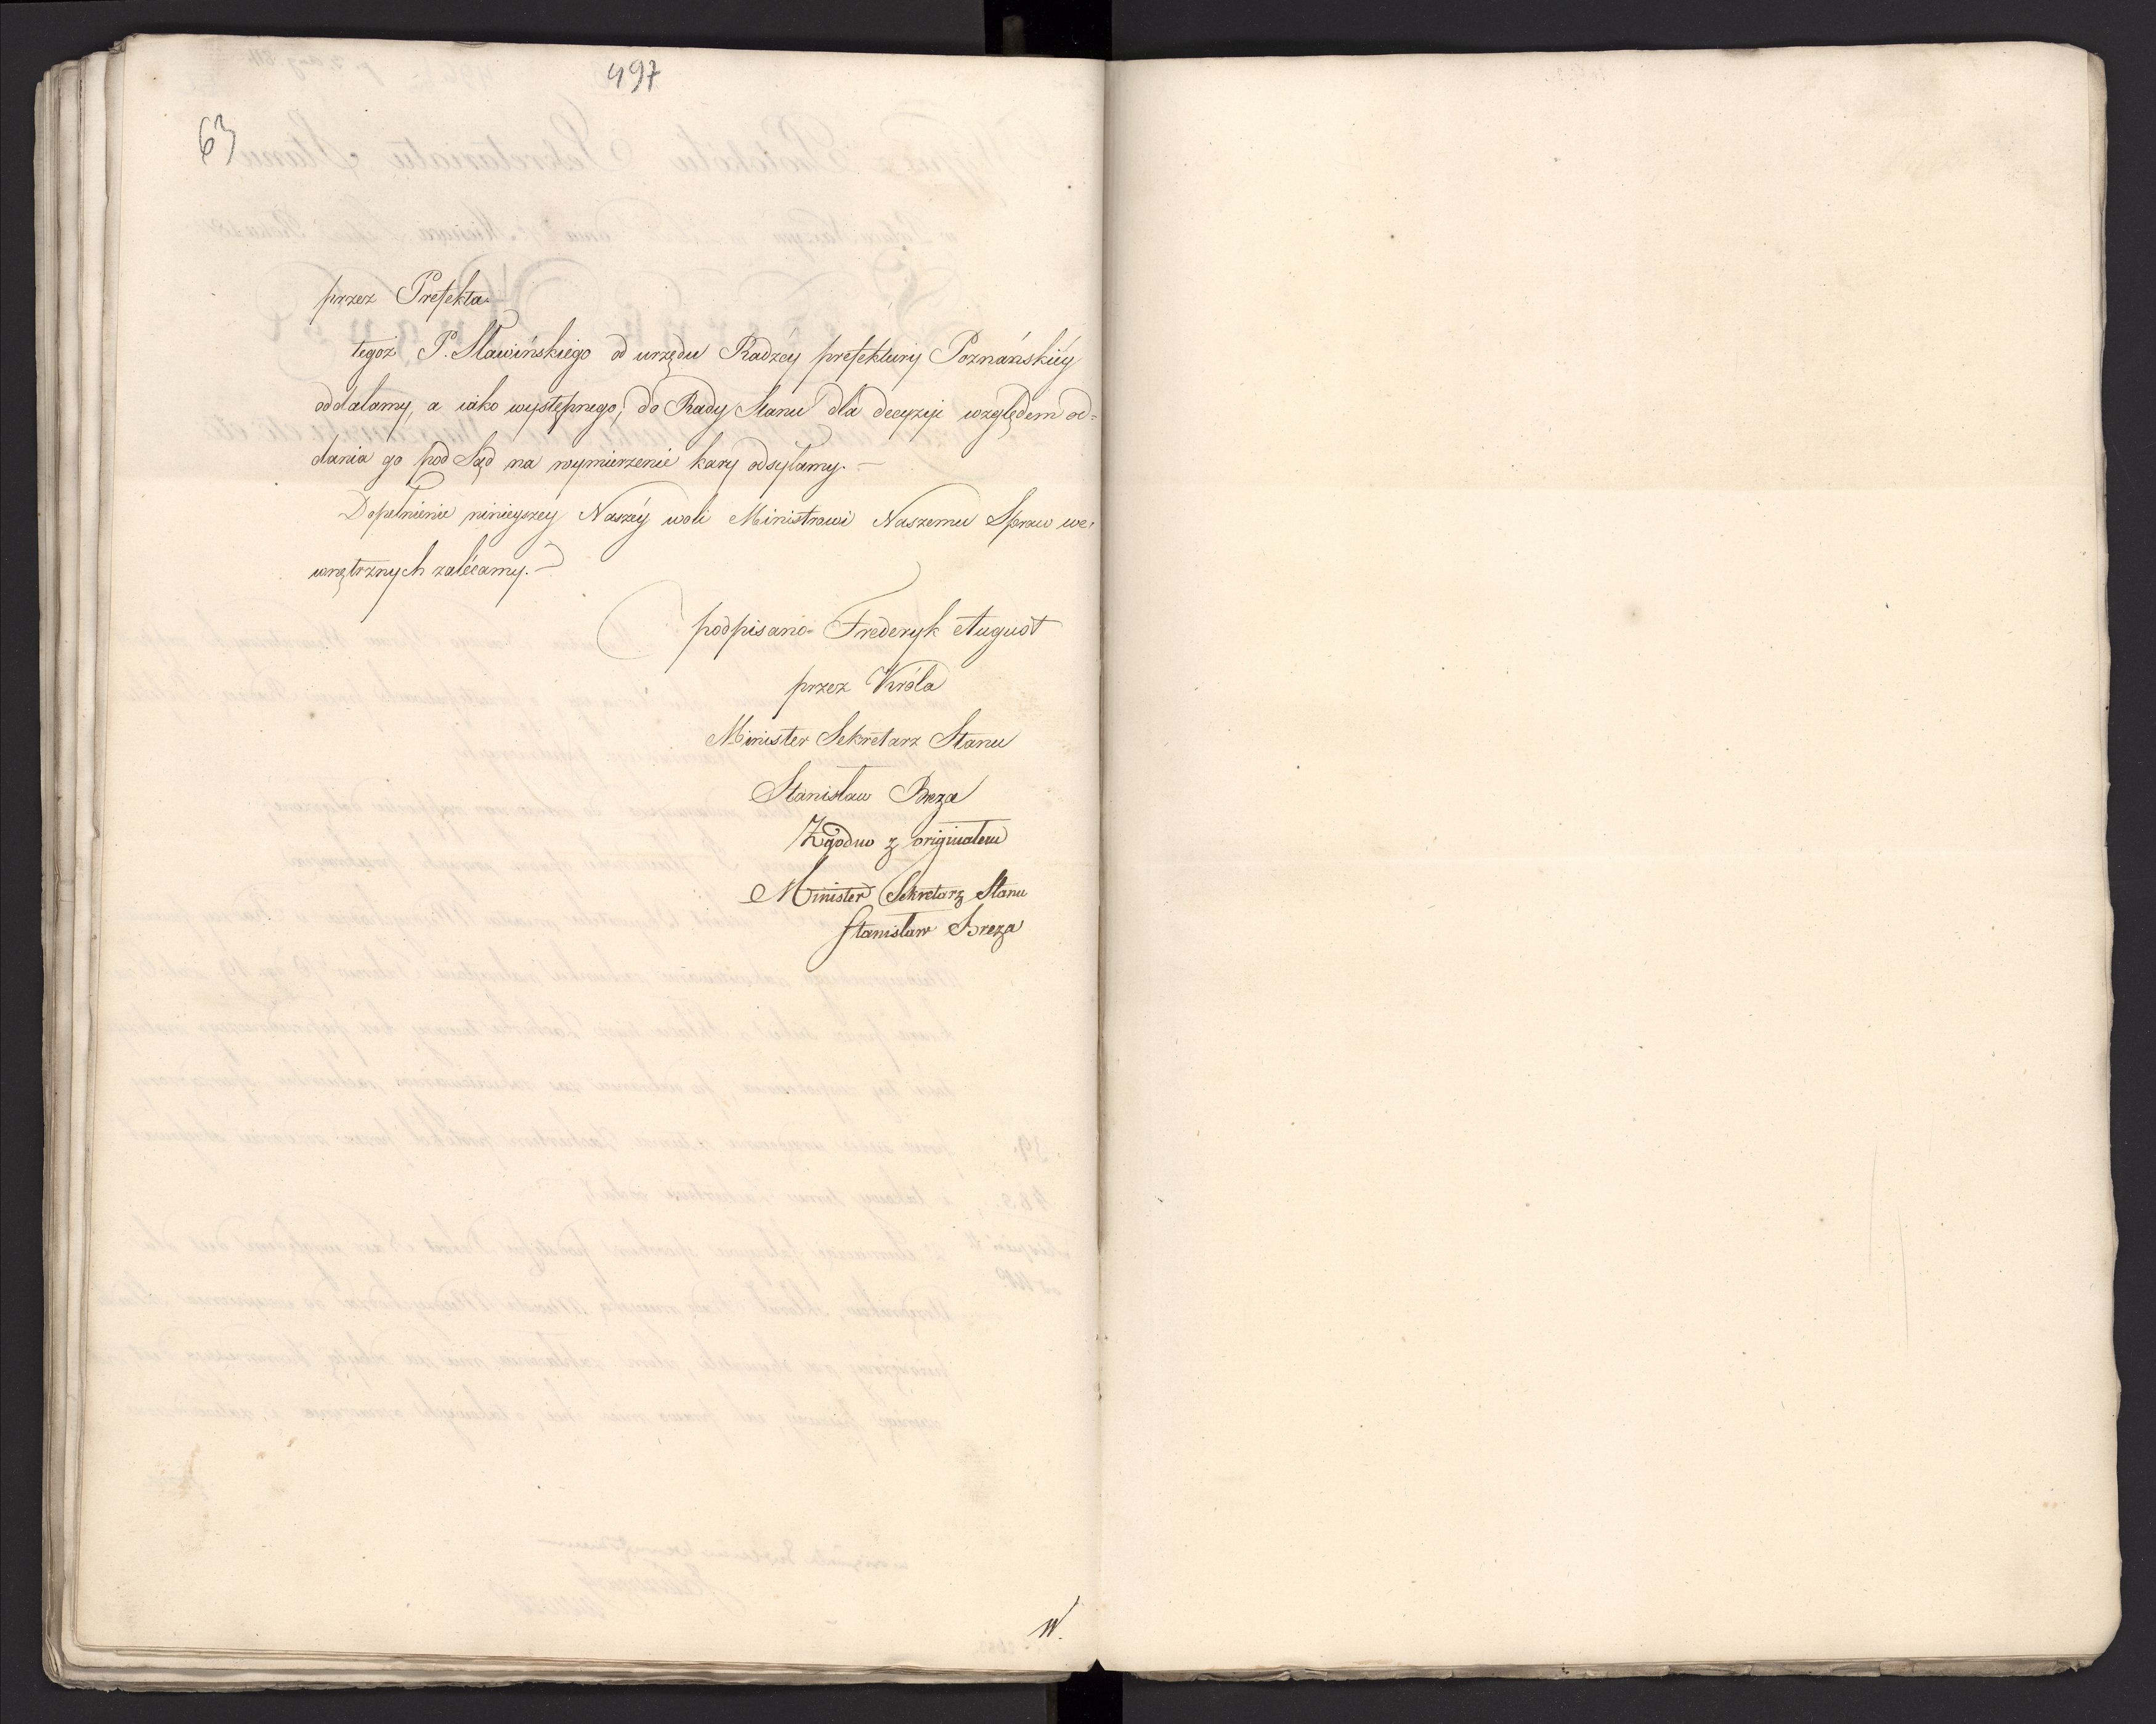 497
63
przez Prefekta.
tegoż P. Sławińskiego od urzędu Radzcy prefektury Poznańskiéy
oddalamy, a iako występnego, do Rady Stanu dla decyzyi względem od=
dania go pod Sąd na wymierzenie kary odsyłamy. —
Dopełnienie ninieyszey Naszéy woli Ministrowi Naszemu Spraw we-
wnętrznych zalécamy. —
podpisano = Frederyk August
przez Króla
Minister Sekretarz Stanu
Stanisław Breza
Zgodno z originałem
Minister Sekretarz Stanu
Stanisław Breza
W.